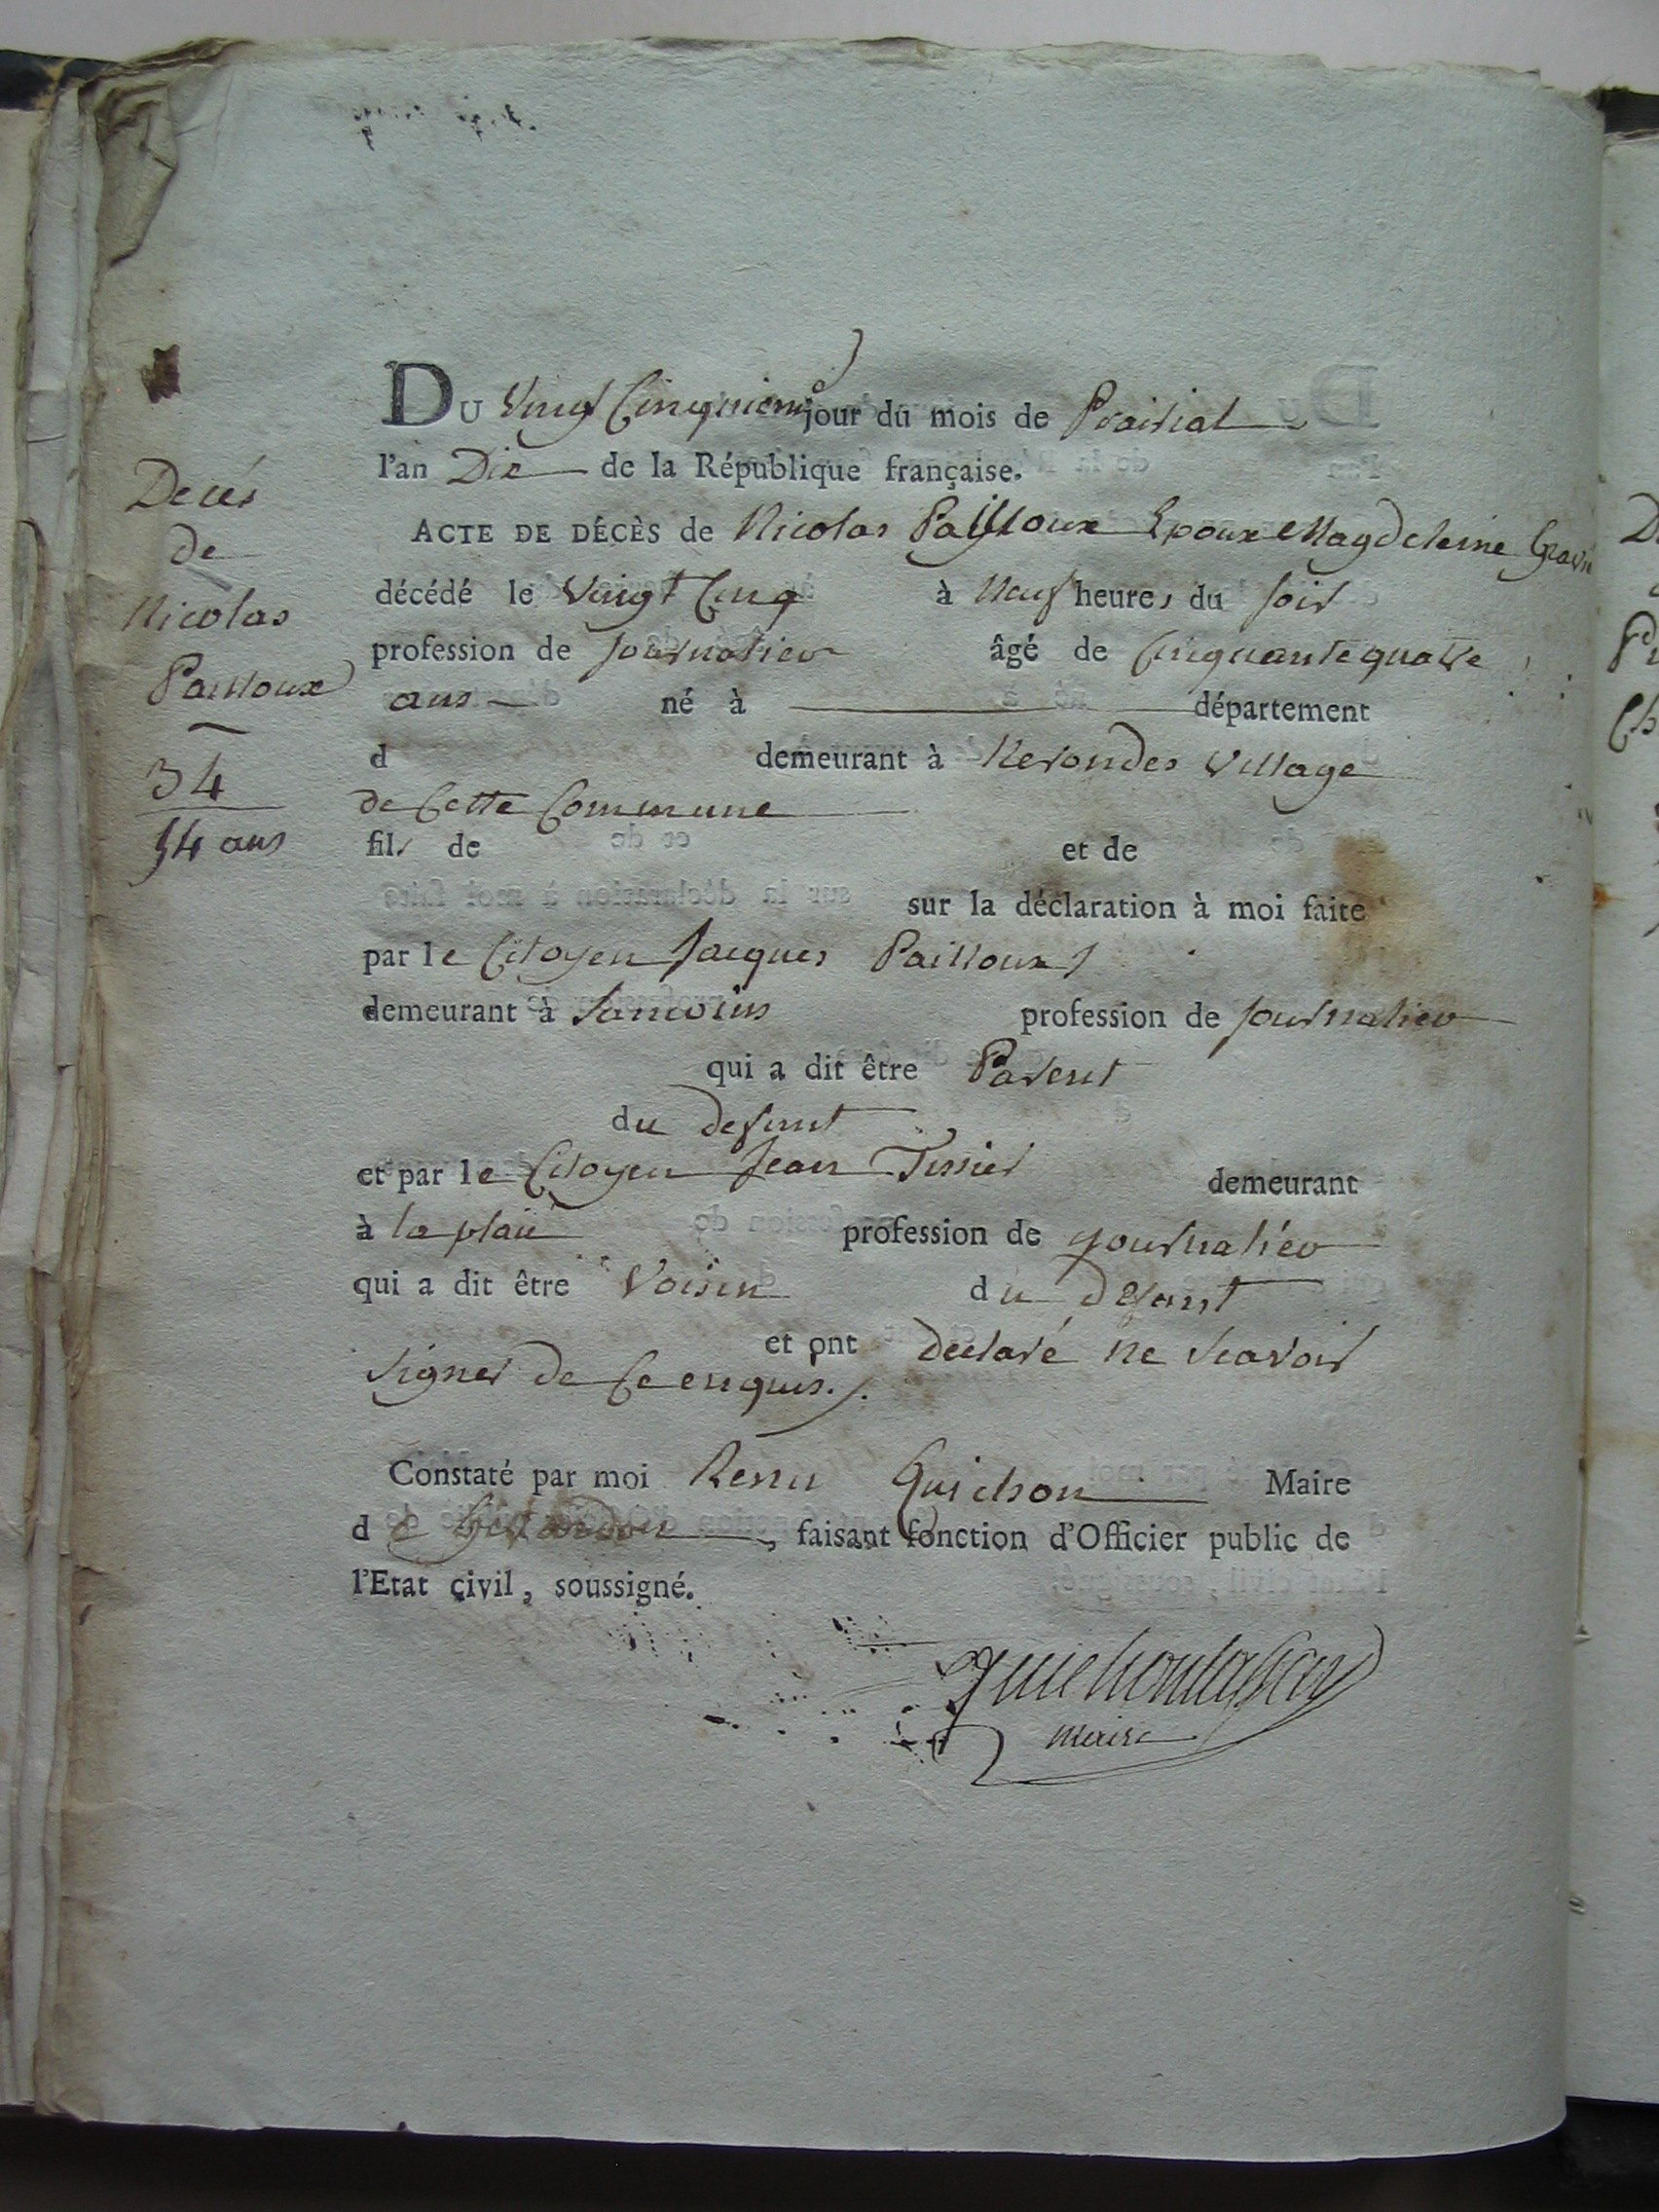 DU Vingt Cinquieme jour du mois de Prairial
l'an Dix de la République française.
ACTE DE DÉCÈS de Nicolas Pailloux Epoux Magdeleine
décédé le Vingt Cinq à Neuf heures du soir
profession de journalier âgé de Cinquante quatre
ans né à département
d demeurant à Nerondes Village
de Cette Commune
fils de et de
sur la déclaration à moi faite
par le Citoyen Jacques Pailloux
demeurant à Sancoins profession de journalier
qui a dit être Parent
du defunt
et par le Citoyen Jean Tissier demeurant
à la profession de journalier
qui a dit être Voisin du defunt
et ont declaré ne scavoir
signer de Ce enquis.
Constaté par moi Guichon Maire
de , faisant fonction d'Officier public de
l'Etat civil, soussigné.
maire
Decés
de
Nicolas
Pailloux
34
54 ans